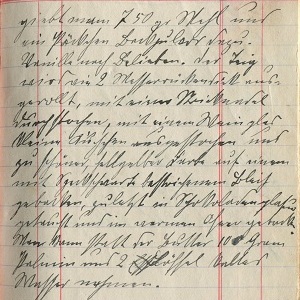 gibt man 750 gr Mehl und
ein Päckchen Backpulver dazu.
Vanille nach Belieben. Der Teig
wird wie 2 Messerrückendick aus-
gerollt, mit einer Stricknadel
durchstochen, mit einem Weinglas
kleine Küchchen ausgestochen und
zu schöner hellgelber Farbe auf einem
mit Speckschwarte bestrichenem Blech
gebacken, zuletzt in Schokoladenglasur
getaucht und im warmen Ofen getrocknet.
Man kann statt der Butter 100 Gramm
Palmin und 2 Esslöffel kaltes
Wasser nehmen.